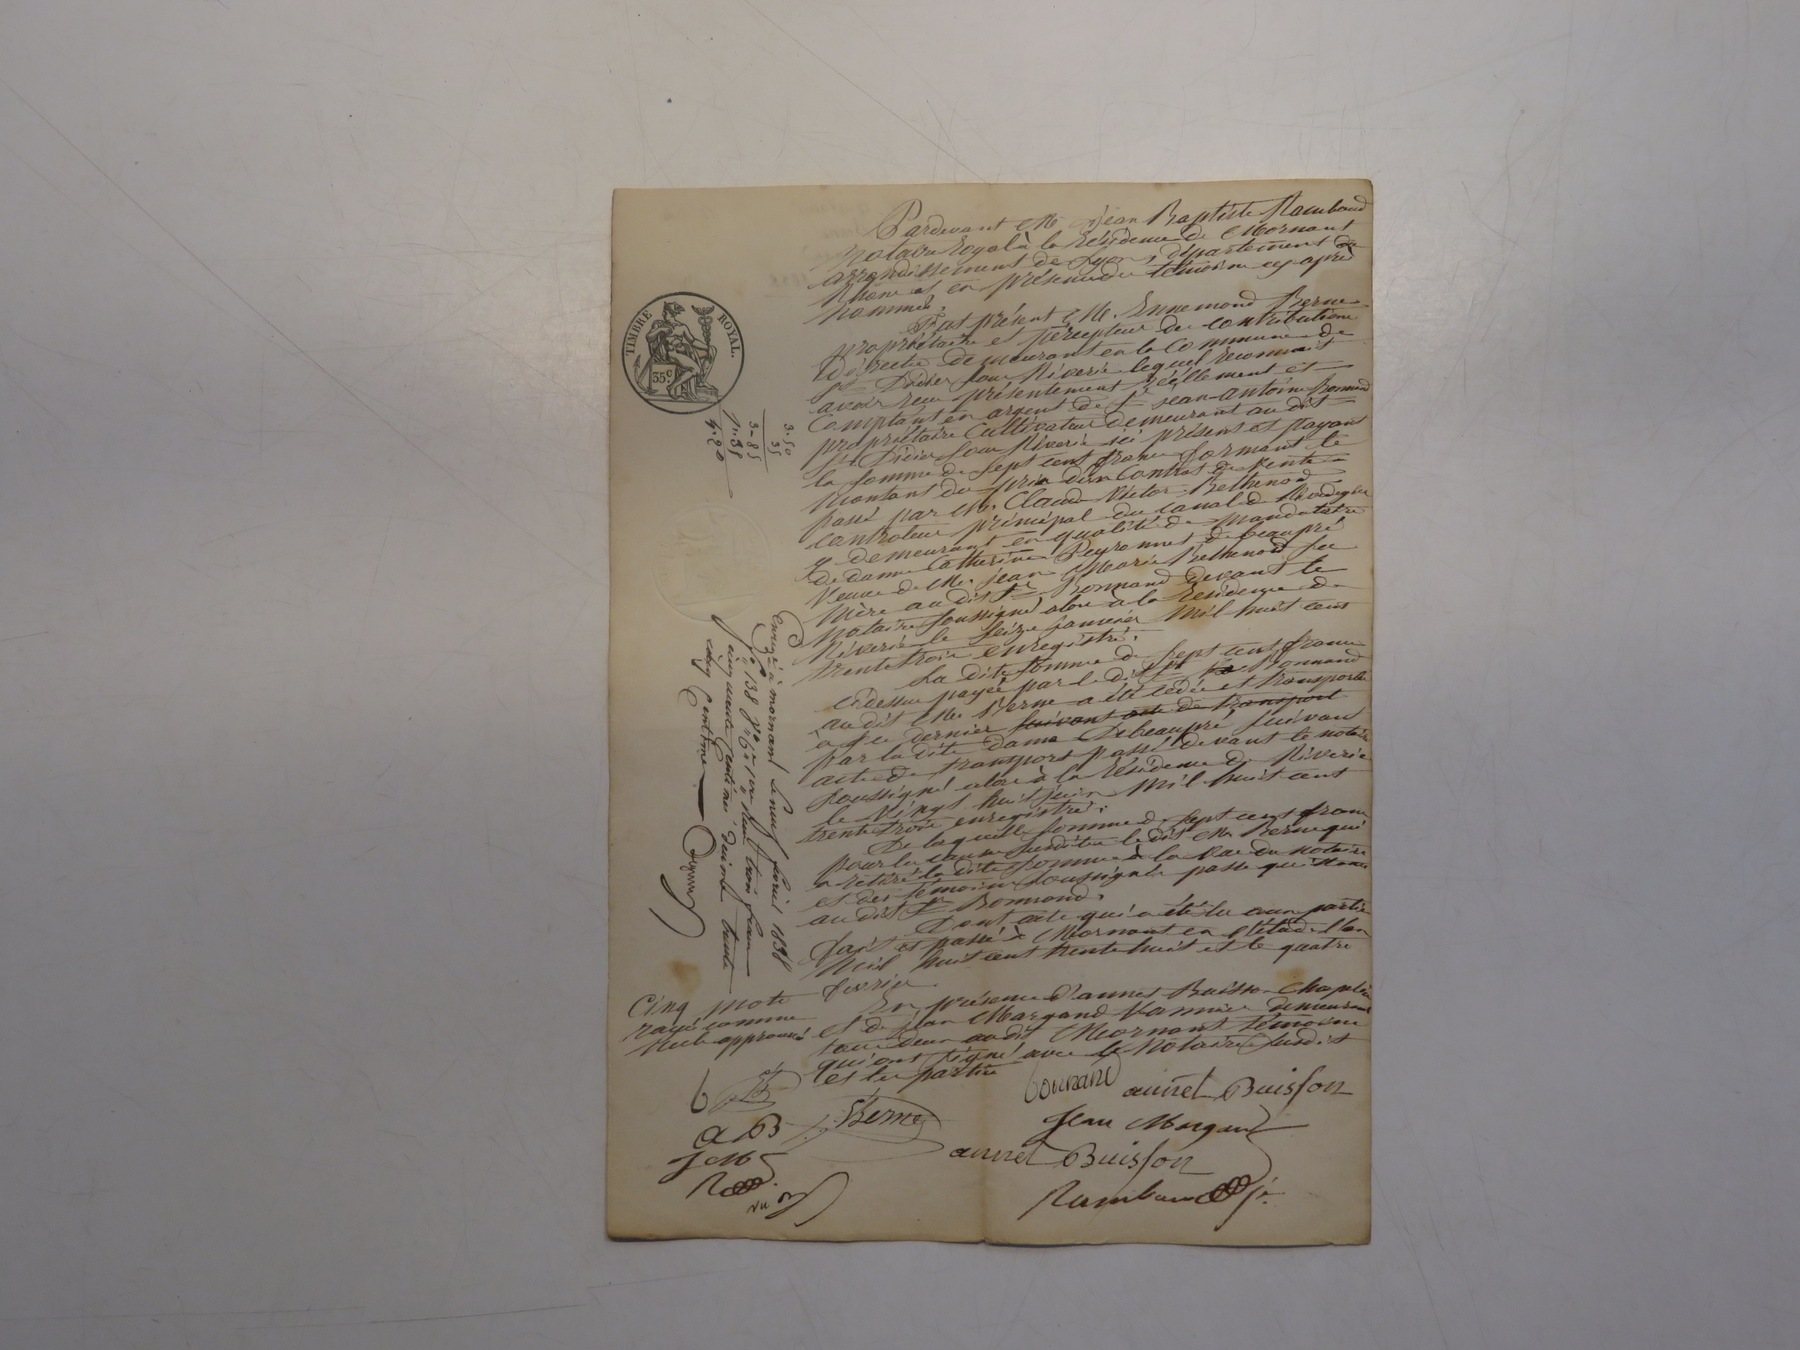 Pardevant Me Jean Baptiste Rambaud
notaire Royal à la Résidence de Mornant
arrondissement de Lyon, département du
Rhône et en présence des témoins cy après
nommés,
Fut présent Mr. Ennemond Berne
propriétaire et percepteur des contributions
directes demeurant en la Commune de
St. Didier sous Riverie lequel reconnait
avoir reçu présentement réellement et
Comptant en argent de Sr Jean-Antoine Bonnand
propriétaire Cultivateur demeurant au dit
St. Didier sous Riverie ici présent et payant
la somme de sept cent francs formant le
montant du prix d'un Contrat de vente
passé par Mr. Claude Victor Bethenod
Controleur principal du Canal de
y demeurant en qualité de mandataire
de dame Catherine Peyronnet de beaupré
Veuve de Mr. Jean Marie Bethenod sa
Mère au dit Sr. Bonnand devant le
notaire soussigné alors à la Résidence de
Riverie le seize janvier mil huit cent
trente trois enregistré.
La dite somme de sept cent francs
cidessus payée par le dit Sr Bonnand
au dit Mr. Berne a été cédée et transportée
à ce dernier suivant acte de transport
par la dite dame de beaupré suivant
acte de transport passé devant le notaire
soussigné alors à la Résidence de Riverie
le vingt huit juin mil huit cent
trente trois enregistré.
De laquelle somme de sept cent francs
pour les causes susdites le dit Mr. Berne qui
a retiré la dite somme à la vue du notaire
et des témoins soussignés passe quittance
au dit Sr Bonnand.
Dont acte qui a été lu aux parties
fait et passé à Mornant en l'étude l'an
Mil huit cent trente huit et le quatre
fevrier.
En présence d'annet Buisson Chapelier
et de Jean Margand Vannier demeurant
tous deux audit Mornant témoins
qui ont signé avec le Notaire susdit
et les parties
bonnand annet Buisson
Berne Jean Margand
annet Buisson
Rambaud
TIMBRE ROYAL.
35c
3-50
35
3-85
1-35
Enregé à mornant le neuf fevrier 1838
fo 138 Ro Cs 1 reçu trois francs
cinquante centimes dixième trente
cinq Centimes
Cinq mots
rayés comme
nuls approuvés
b
B
a B
J M
R